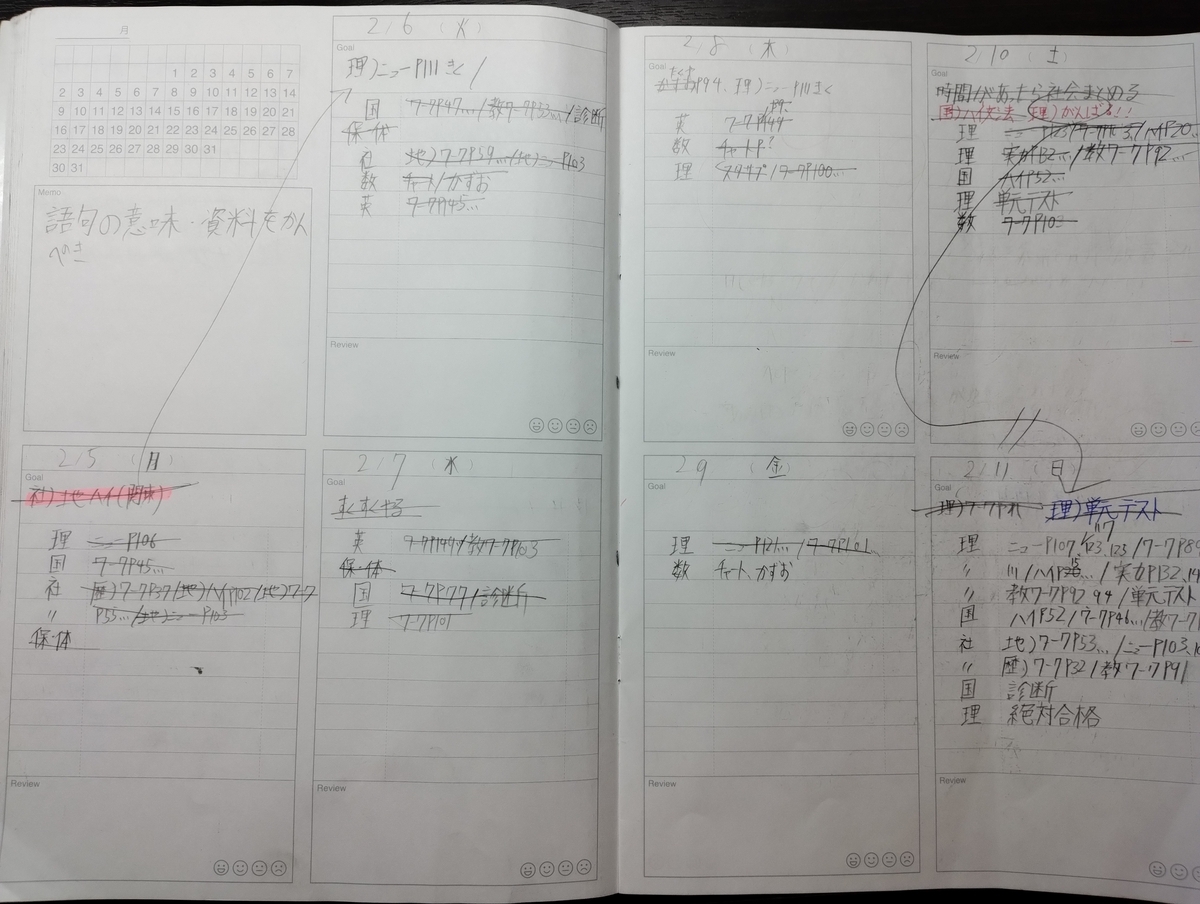 月
1 2 3 4 5 6 7
2 3 4 5 6 7 8 9 10 11 12 13 14
9 10 11 12 13 14 15 16 17 18 19 20 21
16 17 18 19 20 21 22 23 24 25 26 27 28
23 24 25 26 27 28 29 30 31
30 31
Memo
語句の意味・資料をかん
ぺき
2/5 (月)
Goal
社)地ハイ(関東)
理 ニューP106
国 ワークP45...
社 歴)ワークP37/地)ハイP102/地)ワーク
〃 P55.../地)ニューP103
保・体
Review
2/6 (火)
Goal
理)ニューP111きく/
国 ワークP47.../教ワークP53.../診断
保・体
社 地)ワークP59.../地)ニューP103
数 チャート/かずお
英 ワークP45...
Review
2/7 (水)
Goal
英 ワークP144/教ワークP103
保・体
国 ワークP77/診断
理 ワークP101
Review
2/8 (木)
Goal
P94、理)ニューP111きく
英 ワークP144
数 チャートP?
理 /ワークP100...
Review
2 9 (金)
Goal
理 ニューP121.../ワークP101...
数 チャート、かずお
Review
2/10 (土)
Goal
時間があったら社会まとめる
国)ハイ文法 理)がんばる!!
理 /ハイP20...
理 実力P132.../教ワークP92...
国 ハイP52...
理 単元テスト
数 ワークP103
Review
2/11 (日)
Goal
理)単元テスト
理 ニューP107, 117, 123, 123/ワークP89
〃 111/ハイP15.../実力P132, 14
〃 教ワークP92 94/単元テスト
国 ハイP52/ワークP46.../教ワークP
社 地)ワークP53.../ニューP103, 10
〃 歴)ワークP32/教ワークP91
国 診断
理 絶対合格
Review